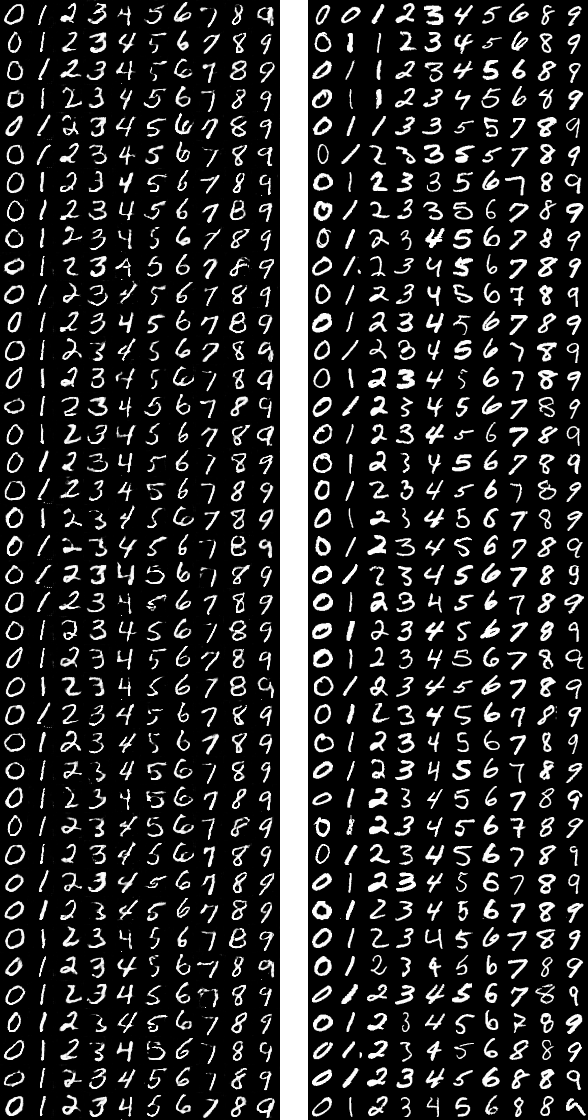 0 1 2 3 4 5 6 7 8 9 0 0 1 2 3 4 5 6 8 9
0 1 2 3 4 5 6 7 8 9 0 1 1 2 3 4 5 6 8 9
0 1 2 3 4 5 6 7 8 9 0 1 1 2 3 4 5 6 8 9
0 1 2 3 4 5 6 7 8 9 0 1 1 2 3 4 5 6 8 9
0 1 2 3 4 5 6 7 8 9 0 1 1 3 3 5 5 7 8 9
0 1 2 3 4 5 6 7 8 9 0 1 2 3 3 5 5 7 8 9
0 1 2 3 4 5 6 7 8 9 0 1 2 3 3 5 6 7 8 9
0 1 2 3 4 5 6 7 8 9 0 1 2 3 3 5 6 7 8 9
0 1 2 3 4 5 6 7 8 9 0 1 2 3 4 5 6 7 8 9
0 1 2 3 4 5 6 7 8 9 0 1 2 3 4 5 6 7 8 9
0 1 2 3 4 5 6 7 8 9 0 1 2 3 4 5 6 7 8 9
0 1 2 3 4 5 6 7 8 9 0 1 2 3 4 5 6 7 8 9
0 1 2 3 4 5 6 7 8 9 0 1 2 3 4 5 6 7 8 9
0 1 2 3 4 5 6 7 8 9 0 1 2 3 4 5 6 7 8 9
0 1 2 3 4 5 6 7 8 9 0 1 2 3 4 5 6 7 8 9
0 1 2 3 4 5 6 7 8 9 0 1 2 3 4 5 6 7 8 9
0 1 2 3 4 5 6 7 8 9 0 1 2 3 4 5 6 7 8 9
0 1 2 3 4 5 6 7 8 9 0 1 2 3 4 5 6 7 8 9
0 1 2 3 4 5 6 7 8 9 0 1 2 3 4 5 6 7 8 9
0 1 2 3 4 5 6 7 8 9 0 1 2 3 4 5 6 7 8 9
0 1 2 3 4 5 6 7 8 9 0 1 2 3 4 5 6 7 8 9
0 1 2 3 4 5 6 7 8 9 0 1 2 3 4 5 6 7 8 9
0 1 2 3 4 5 6 7 8 9 0 1 2 3 4 5 6 7 8 9
0 1 2 3 4 5 6 7 8 9 0 1 2 3 4 5 6 7 8 9
0 1 2 3 4 5 6 7 8 9 0 1 2 3 4 5 6 7 8 9
0 1 2 3 4 5 6 7 8 9 0 1 2 3 4 5 6 7 8 9
0 1 2 3 4 5 6 7 8 9 0 1 2 3 4 5 6 7 8 9
0 1 2 3 4 5 6 7 8 9 0 1 2 3 4 5 6 7 8 9
0 1 2 3 4 5 6 7 8 9 0 1 2 3 4 5 6 7 8 9
0 1 2 3 4 5 6 7 8 9 0 1 2 3 4 5 6 7 8 9
0 1 2 3 4 5 6 7 8 9 0 1 2 3 4 5 6 7 8 9
0 1 2 3 4 5 6 7 8 9 0 1 2 3 4 5 6 7 8 9
0 1 2 3 4 5 6 7 8 9 0 1 2 3 4 5 6 7 8 9
0 1 2 3 4 5 6 7 8 9 0 1 2 3 4 5 6 7 8 9
0 1 2 3 4 5 6 7 8 9 0 1 2 3 4 5 6 7 8 9
0 1 2 3 4 5 6 7 8 9 0 1 2 3 4 5 6 7 8 9
0 1 2 3 4 5 6 7 8 9 0 1 2 3 4 5 6 7 8 9
0 1 2 3 4 5 6 7 8 9 0 1 2 3 4 5 6 8 8 9
0 1 2 3 4 5 6 7 8 9 0 1 2 3 4 5 6 8 8 9
0 1 2 3 4 5 6 7 8 9 0 1 2 3 4 5 6 8 8